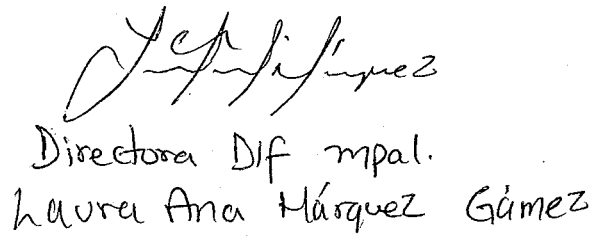 Directora DIF mpal.
Laura Ana Márquez Gámez